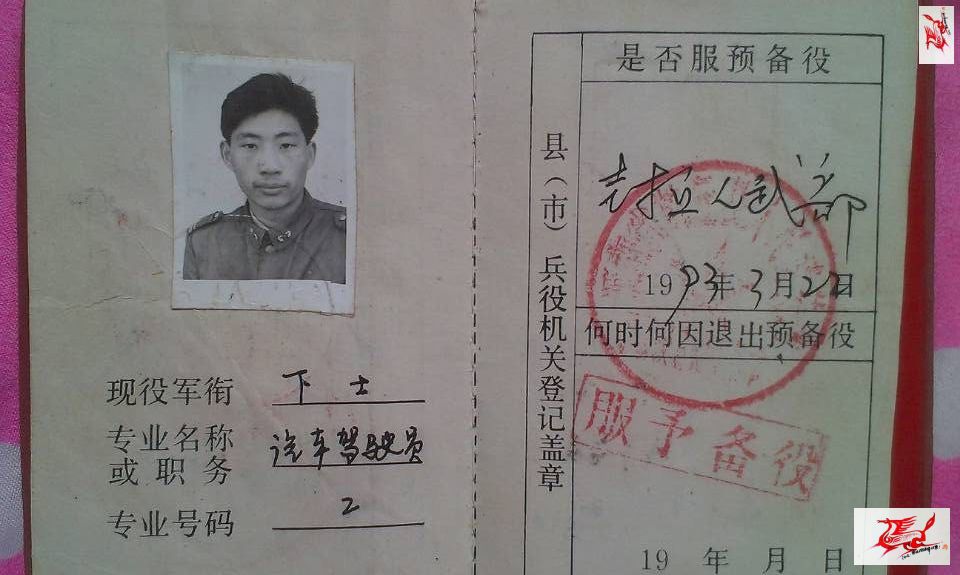 现役军衔 下士
专业名称
或职务 汽车驾驶员
专业号码 2
县(市)兵役机关登记盖章
是否服预备役
人武部
1993年3月22日
何时何因退出预备役
服予备役
19 年 月 日